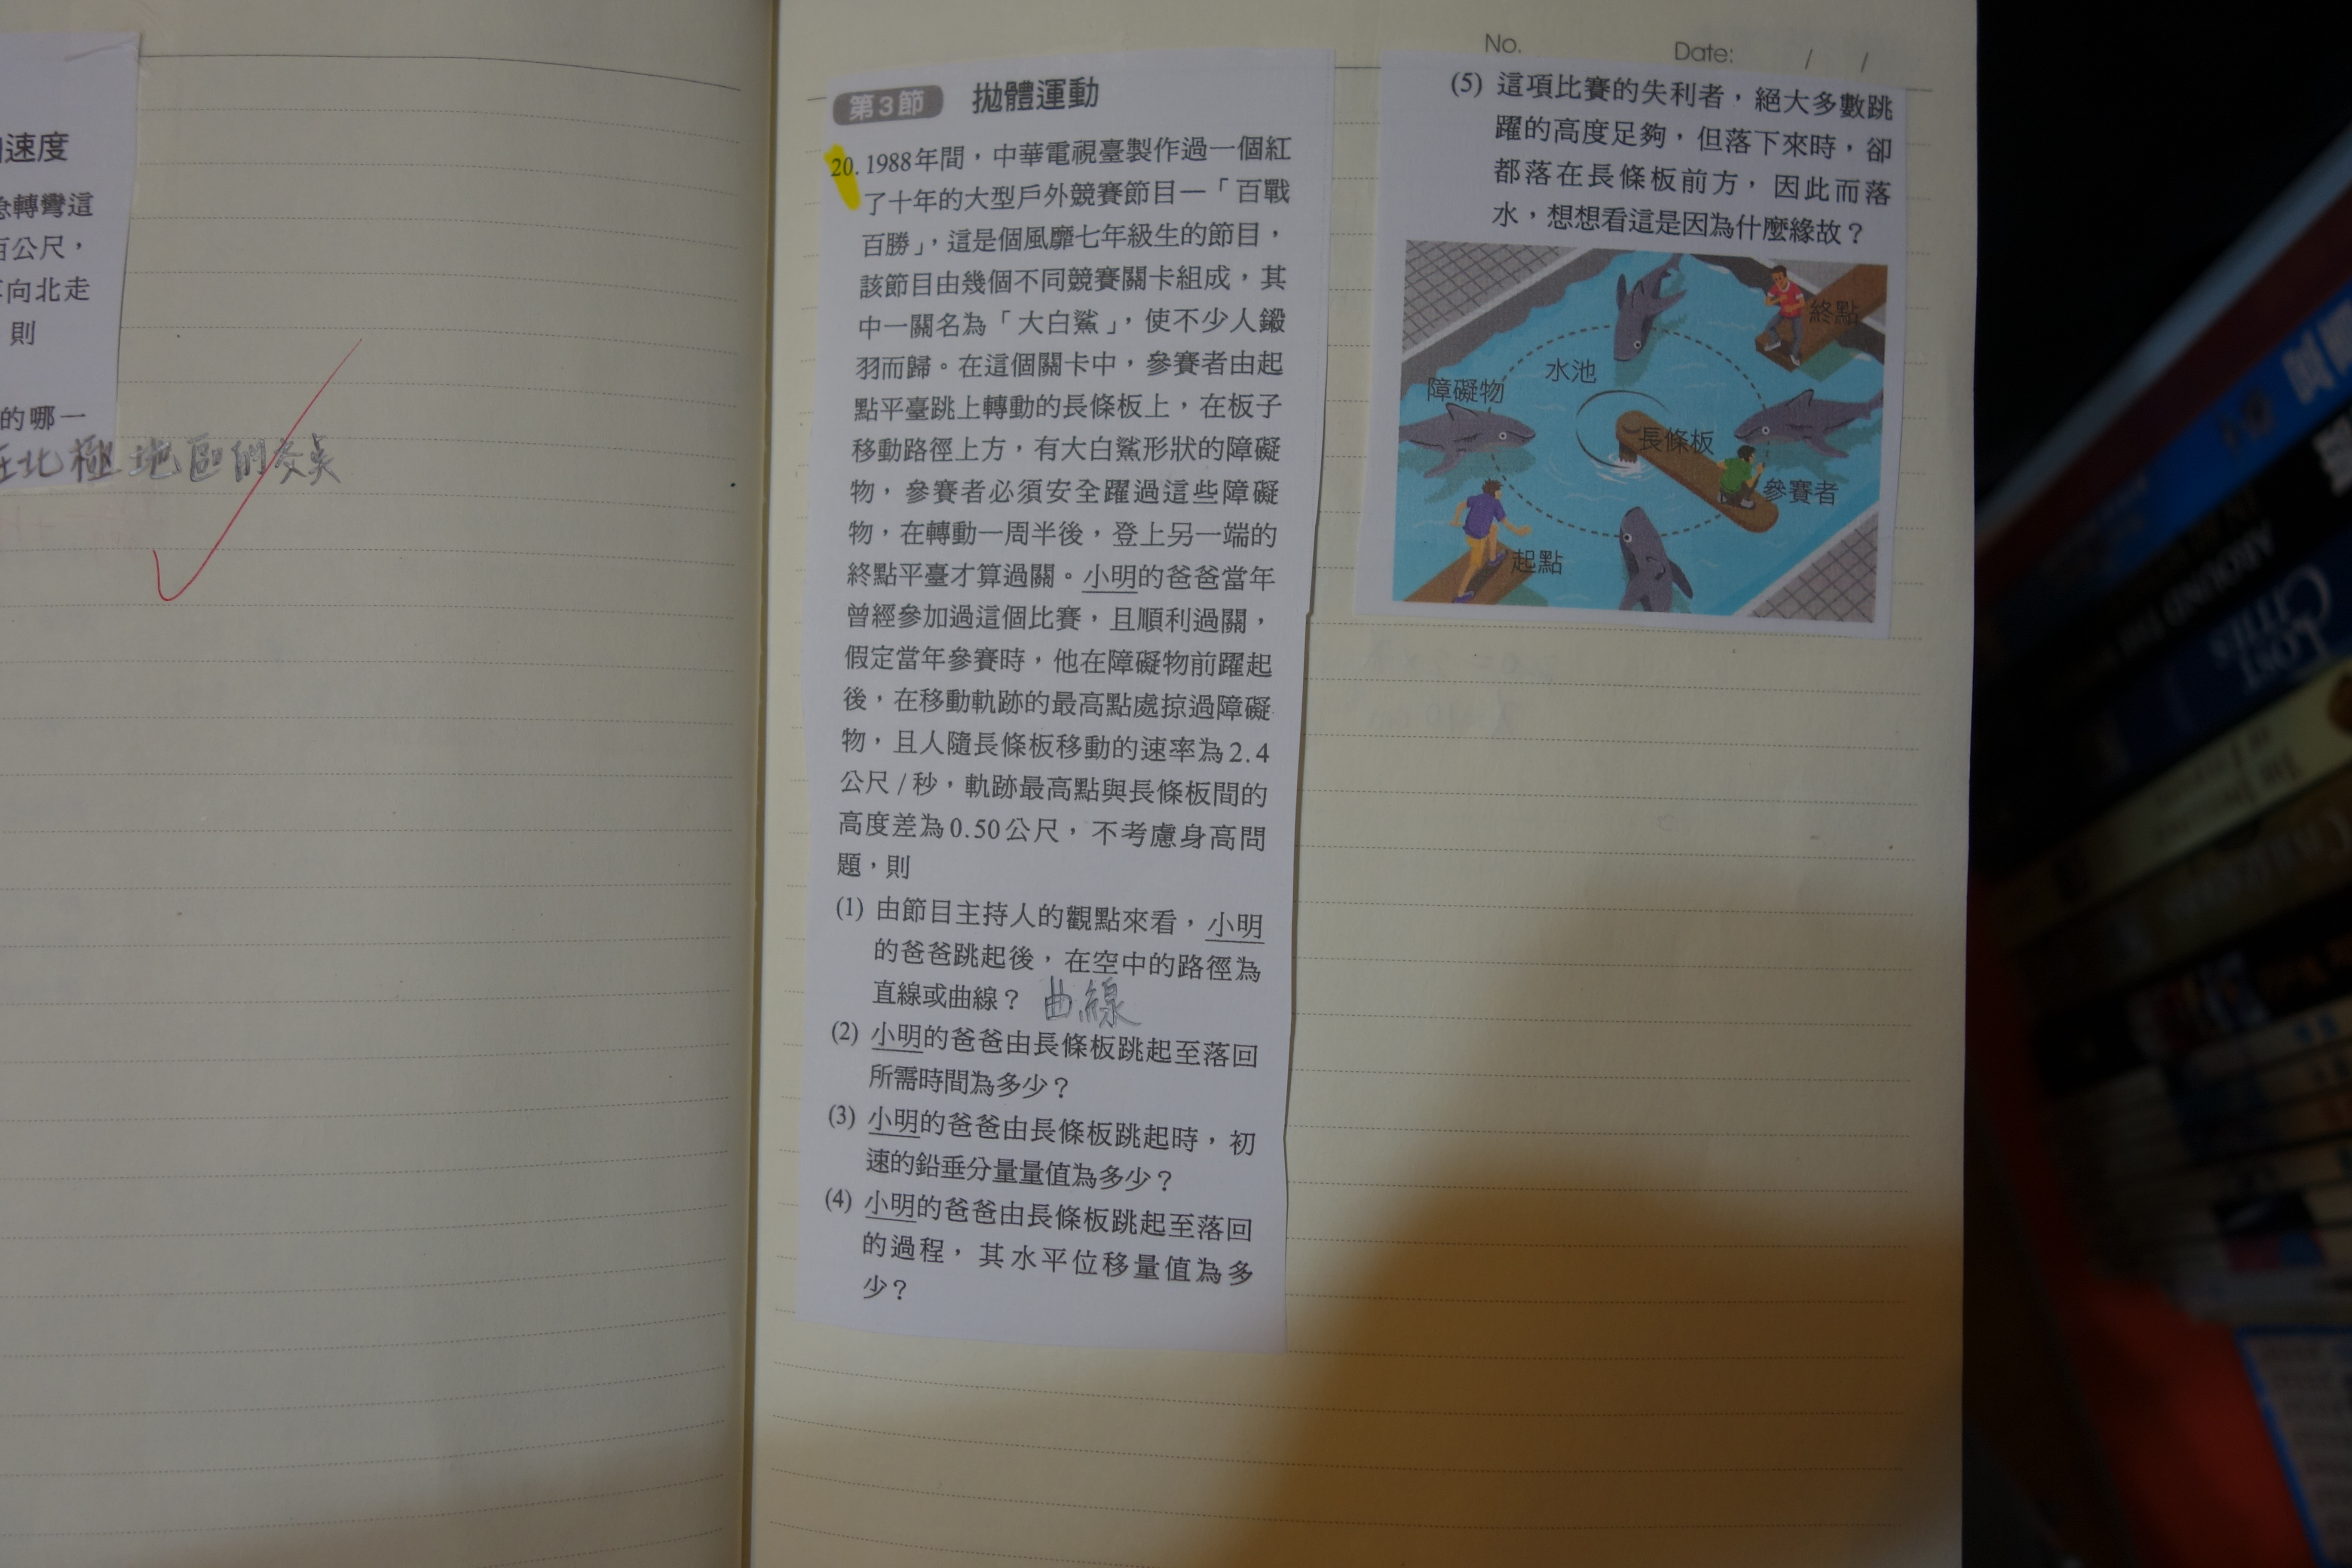 速度
急轉彎這
百公尺，
向北走
則
的哪一
在北極地區的
No.
Date: / /
第3節 拋體運動
20. 1988年間，中華電視臺製作過一個紅
了十年的大型戶外競賽節目—「百戰
百勝」，這是個風靡七年級生的節目，
該節目由幾個不同競賽關卡組成，其
中一關名為「大白鯊」，使不少人鎩
羽而歸。在這個關卡中，參賽者由起
點平臺跳上轉動的長條板上，在板子
移動路徑上方，有大白鯊形狀的障礙
物，參賽者必須安全躍過這些障礙
物，在轉動一周半後，登上另一端的
終點平臺才算過關。小明的爸爸當年
曾經參加過這個比賽，且順利過關，
假定當年參賽時，他在障礙物前躍起
後，在移動軌跡的最高點處掠過障礙
物，且人隨長條板移動的速率為2.4
公尺/秒，軌跡最高點與長條板間的
高度差為0.50公尺，不考慮身高問
題，則
(1) 由節目主持人的觀點來看，小明
的爸爸跳起後，在空中的路徑為
直線或曲線？ 曲線
(2) 小明的爸爸由長條板跳起至落回
所需時間為多少？
(3) 小明的爸爸由長條板跳起時，初
速的鉛垂分量量值為多少？
(4) 小明的爸爸由長條板跳起至落回
的過程，其水平位移量值為多
少？
(5) 這項比賽的失利者，絕大多數跳
躍的高度足夠，但落下來時，卻
都落在長條板前方，因此而落
水，想想看這是因為什麼緣故？
終點
水池
障礙物
長條板
參賽者
起點
AROUND THE
LOST
CITIES